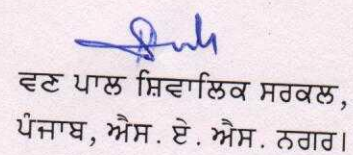 ਵਣ ਪਾਲ ਸ਼ਿਵਾਲਿਕ ਸਰਕਲ,
ਪੰਜਾਬ, ਐਸ. ਏ. ਐਸ. ਨਗਰ।